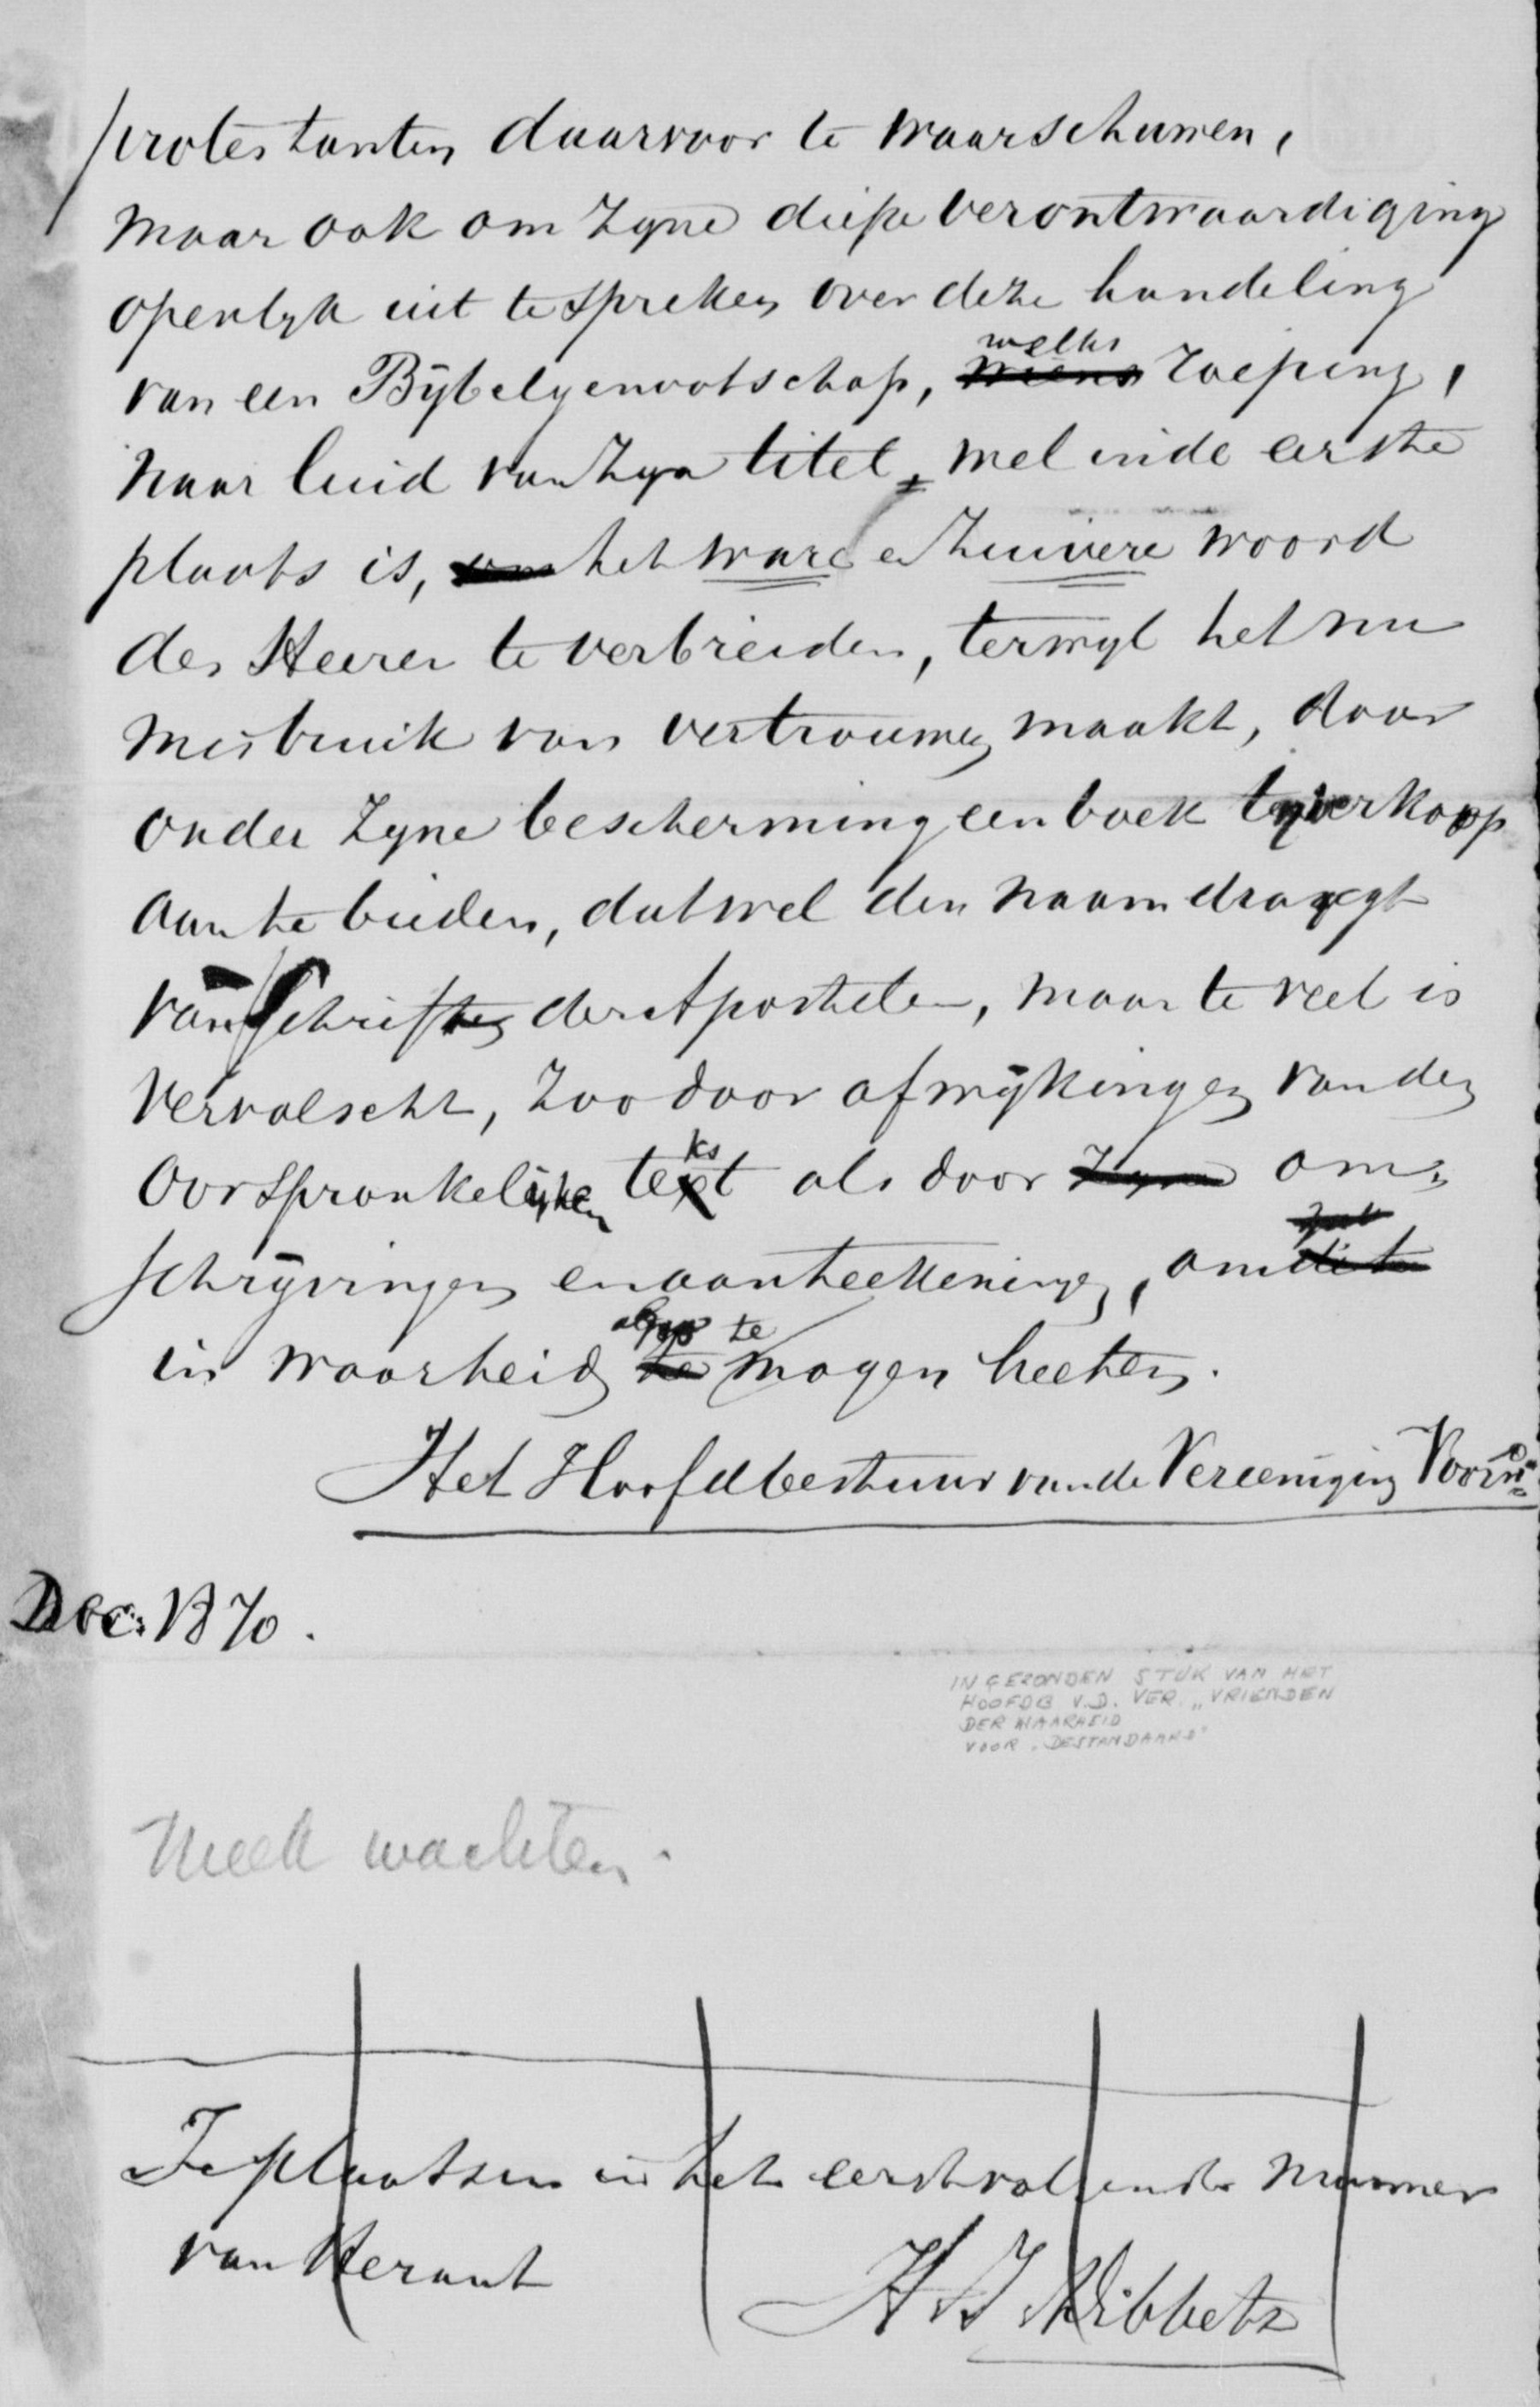 protestanten daarvoor te waarschuwen,
maar ook om zyne diepe verontwaardiging
openlyk uit te spreken over deze handeling
welks
van een Bijbelgenootschap, wiens roeping,
naar luid van zyn titel, wel in de eerste
plaats is, het ware en zuivere woord
des Heeren te verbreiden, terwyl het nu
misbruik van vertrouwen maakt, door
onder zyne bescherming een boek te verkoop
aan te bieden, dat wel den naam draagt
van Schriften der Apostelen, maar te veel is
vervalscht, zoo door afwijkingen van den
ks
oorspronkelijken text als door zyne om=
schrijvingen en aanteekeningen, om dit
te
in waarheid te mogen heeten.
Het Hoofdbestuur van de Vereeniging Voorn:
Dec. 1870.
INGEZONDEN STUK VAN HET
HOOFDB V.D. VER. „VRIENDEN
DER WAARHEID
VOOR „DE STANDAARD"
wachten.
Te plaatsen in het eerstvolgende nummer
van Heraut